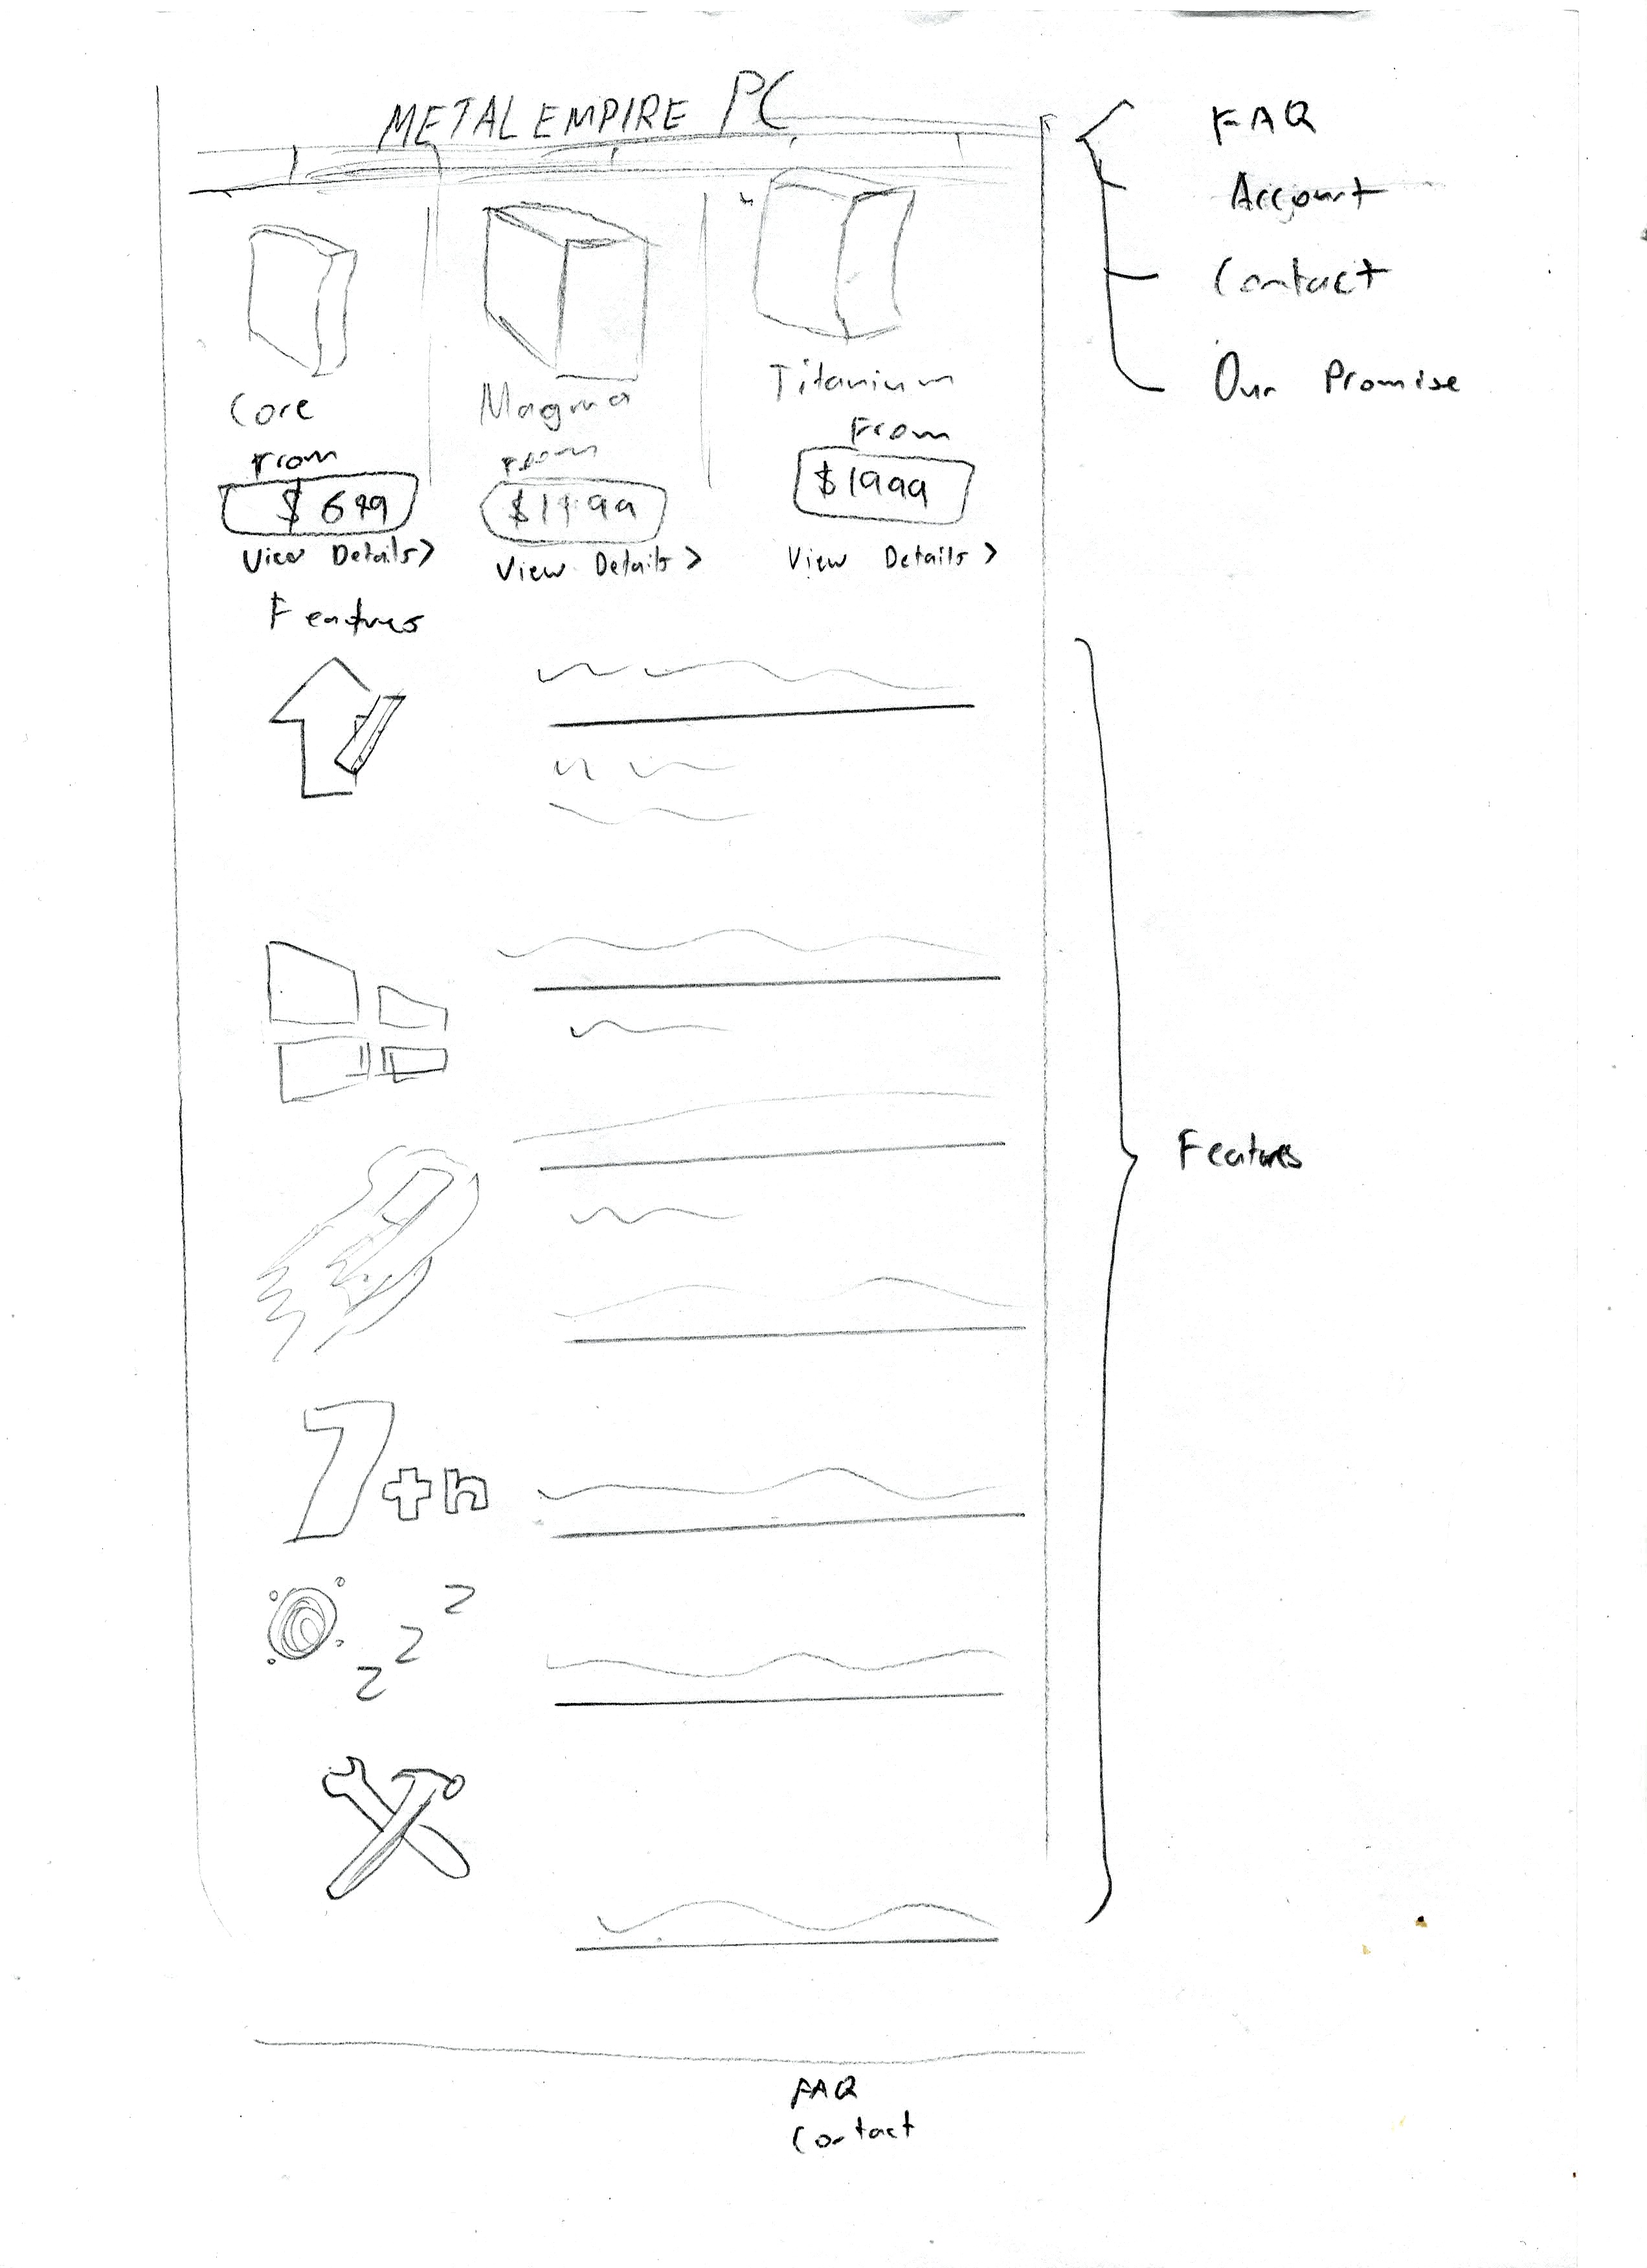 METAL EMPIRE PC
FAQ
Account
Contact
Our Promise
Core
From
$699
View Details >
Magma
From
View Details >
Titanium
From
$1999
View Details >
Features
Features
7th
z z z
FAQ
Contact